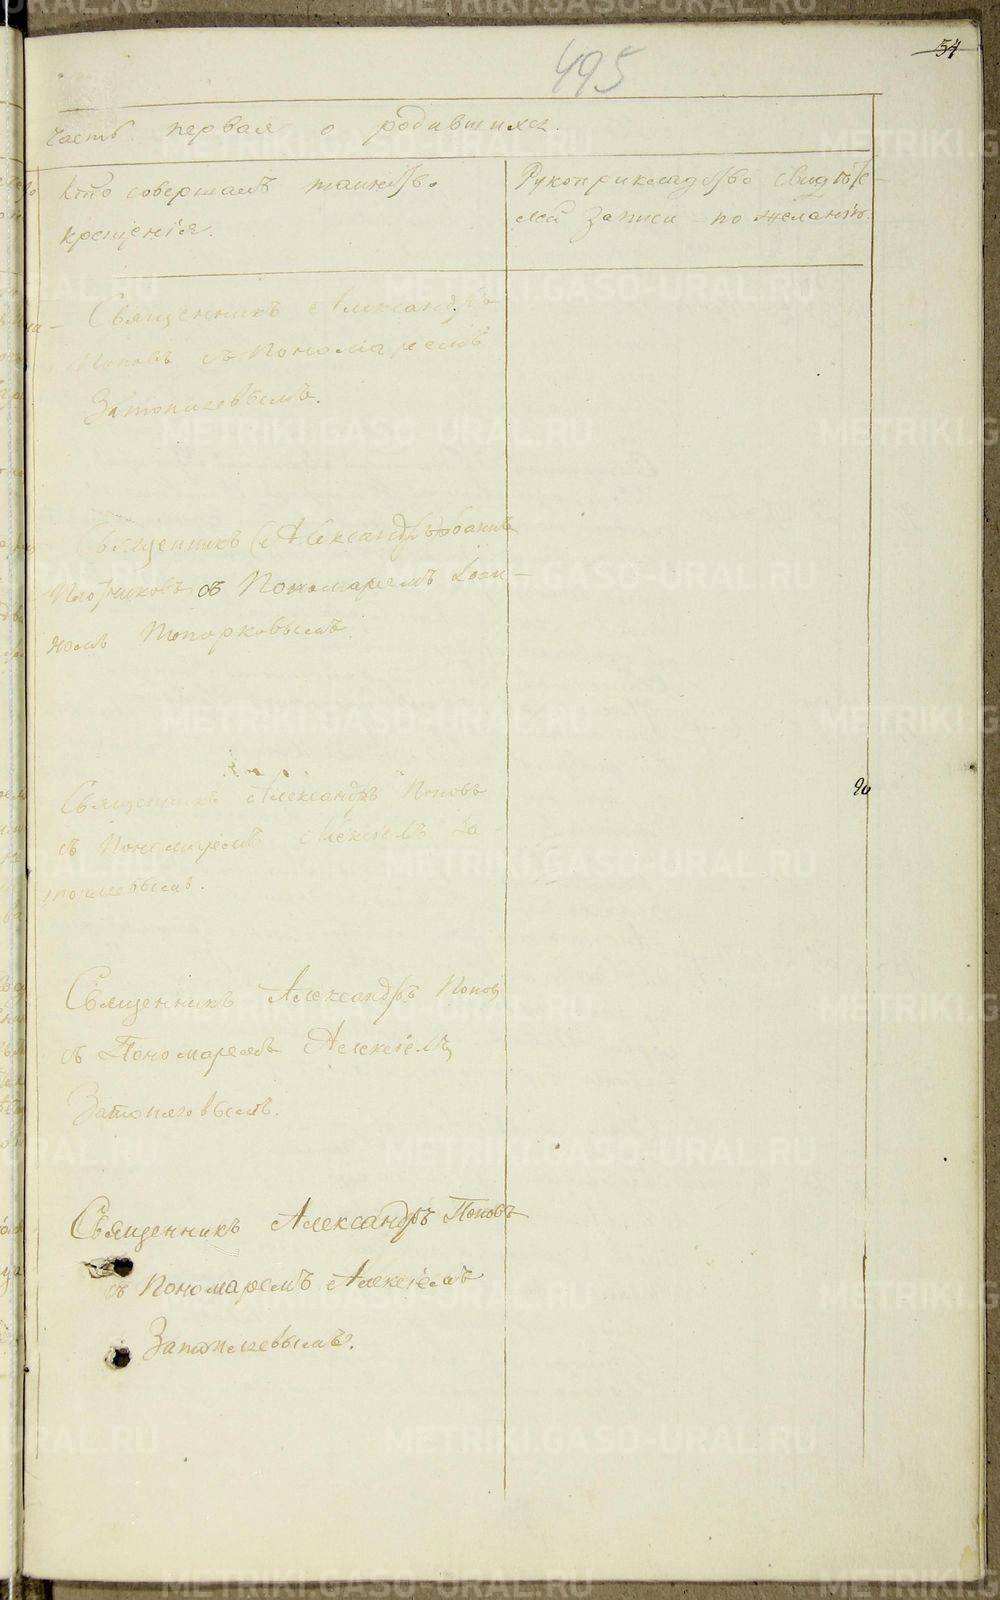 495
54
Часть первая о родившихся.
Кто совершалъ таинство
крещенія.
Рукоприкладство свидѣте-
лей записи по желанію.
Священникъ Александръ
Поповъ съ Пономаремъ
Затопляевымъ.
Священникъ Александръ
съ Пономаремъ Іоан-
номъ Топорковымъ.
Священникъ Александръ Поповъ
съ Пономаремъ Алексіемъ За-
топляевымъ.
Священникъ Александръ Поповъ
съ Пономаремъ Алексіемъ
Затопляевымъ.
Священникъ Александръ Поповъ
съ Пономаремъ Алексіемъ
Затопляевымъ.
METRIKI.GASO-URAL.RU